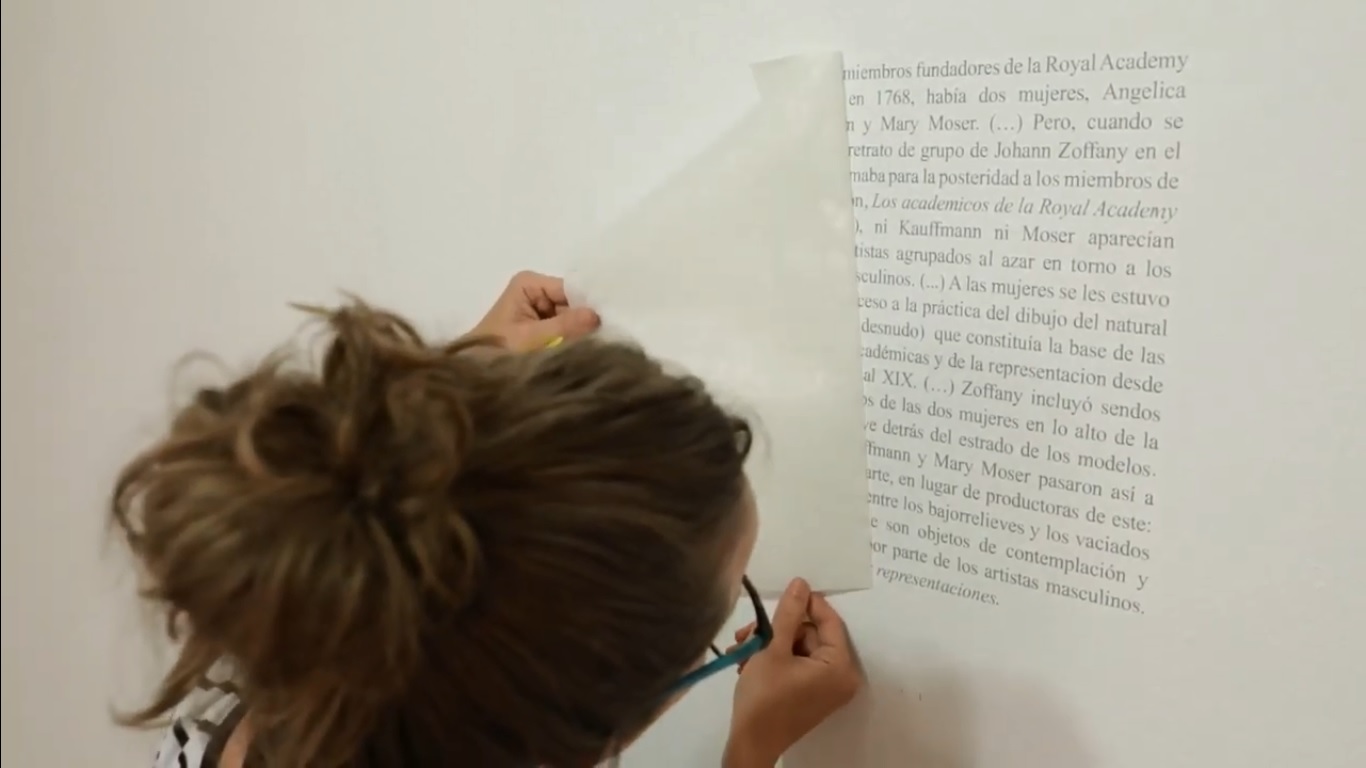 miembros fundadores de la Royal Academy
en 1768, había dos mujeres, Angelica
y Mary Moser. (…) Pero, cuando se
retrato de grupo de Johann Zoffany en el
para la posteridad a los miembros de
Los academicos de la Royal Academy
), ni Kauffmann ni Moser aparecían
agrupados al azar en torno a los
(...) A las mujeres se les estuvo
a la práctica del dibujo del natural
desnudo) que constituía la base de las
y de la representacion desde
al XIX. (…) Zoffany incluyó sendos
de las dos mujeres en lo alto de la
detrás del estrado de los modelos.
y Mary Moser pasaron así a
en lugar de productoras de este:
entre los bajorrelieves y los vaciados
son objetos de contemplación y
por parte de los artistas masculinos.
representaciones.